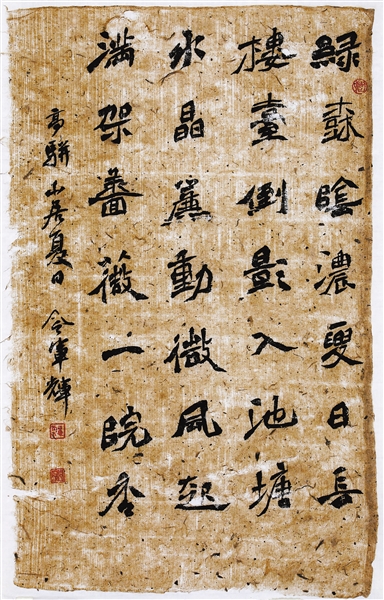 綠樹陰濃夏日長
樓臺倒影入池塘
水晶簾動微風起
滿架薔薇一院香
高駢山居夏日 軍輝